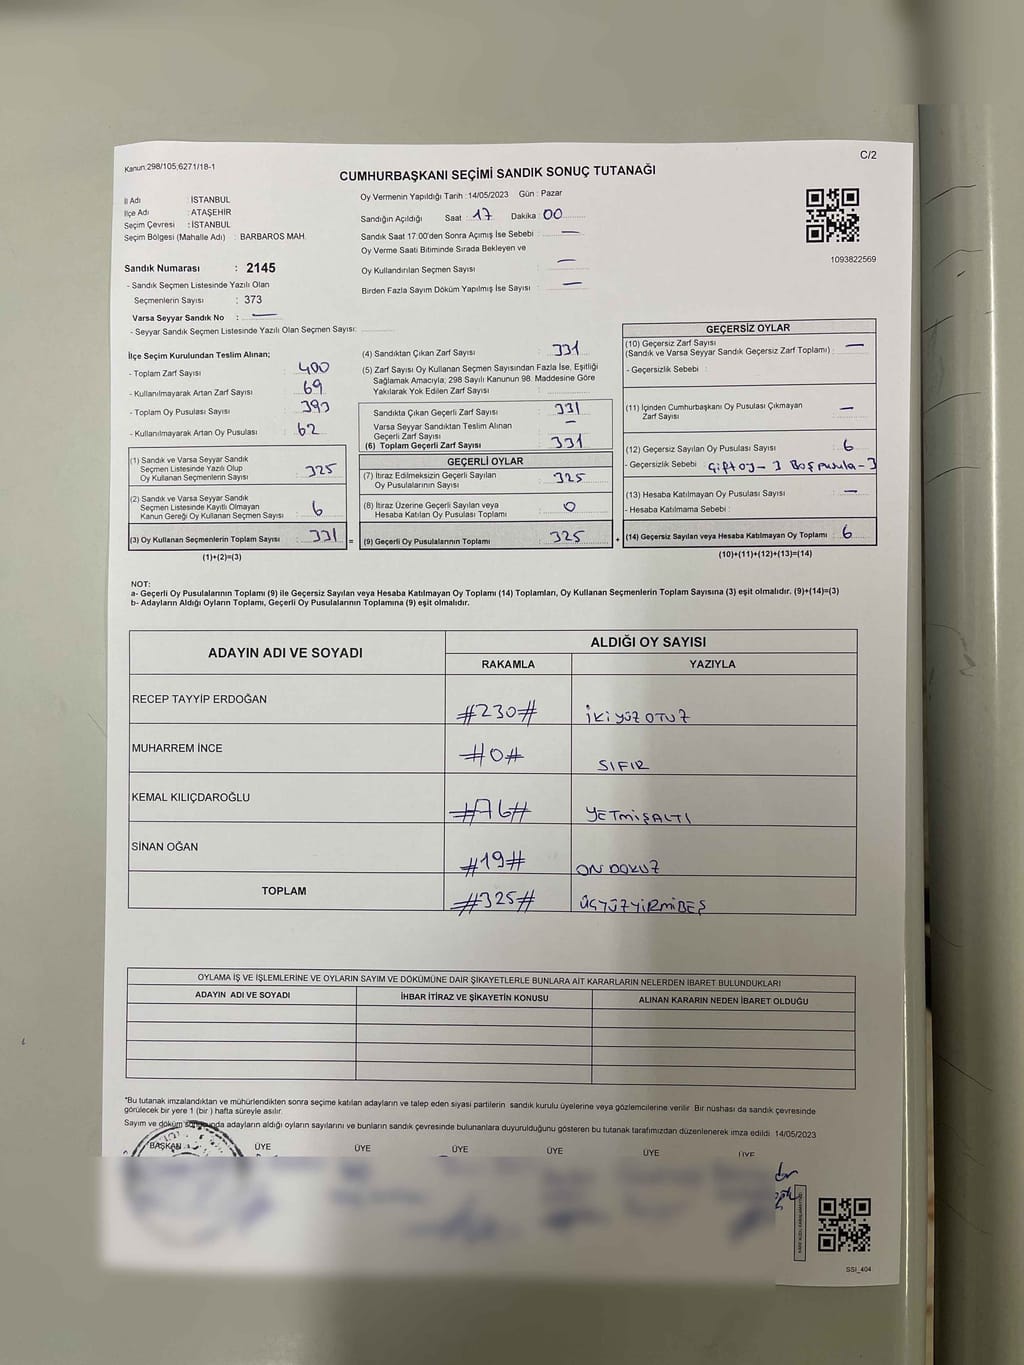 Kanun.298/105,6271/18-1
C/2
CUMHURBAŞKANI SEÇİMİ SANDIK SONUÇ TUTANAĞI
İl Adı : İSTANBUL
İlçe Adı : ATAŞEHİR
Seçim Çevresi : İSTANBUL
Seçim Bölgesi (Mahalle Adı) : BARBAROS MAH.
Sandık Numarası : 2145
- Sandık Seçmen Listesinde Yazılı Olan
Seçmenlerin Sayısı : 373
Varsa Seyyar Sandık No : —
- Seyyar Sandık Seçmen Listesinde Yazılı Olan Seçmen Sayısı:
Oy Vermenin Yapıldığı Tarih :14/05/2023 Gün : Pazar
Sandığın Açıldığı Saat : 17 Dakika : 00
Sandık Saat 17:00'den Sonra Açımış İse Sebebi : —
Oy Verme Saati Bitiminde Sırada Bekleyen ve
Oy Kullandırılan Seçmen Sayısı : —
Birden Fazla Sayım Döküm Yapılmış İse Sayısı : —
1093822569
İlçe Seçim Kurulundan Teslim Alınan;
- Toplam Zarf Sayısı : 400
- Kullanılmayarak Artan Zarf Sayısı : 69
- Toplam Oy Pusulası Sayısı : 393
- Kullanılmayarak Artan Oy Pusulası : 62
(1) Sandık ve Varsa Seyyar Sandık
Seçmen Listesinde Yazılı Olup
Oy Kullanan Seçmenlerin Sayısı : 325
(2) Sandık ve Varsa Seyyar Sandık
Seçmen Listesinde Kayıtlı Olmayan
Kanun Gereği Oy Kullanan Seçmen Sayısı : 6
(3) Oy Kullanan Seçmenlerin Toplam Sayısı : 331 =
(1)+(2)=(3)
(4) Sandıktan Çıkan Zarf Sayısı : 331
(5) Zarf Sayısı Oy Kullanan Seçmen Sayısından Fazla İse, Eşitliği
Sağlamak Amacıyla; 298 Sayılı Kanunun 98. Maddesine Göre
Yakılarak Yok Edilen Zarf Sayısı :
Sandıkta Çıkan Geçerli Zarf Sayısı : 331
Varsa Seyyar Sandıktan Teslim Alınan
Geçerli Zarf Sayısı : —
(6) Toplam Geçerli Zarf Sayısı : 331
GEÇERLİ OYLAR
(7) İtiraz Edilmeksizin Geçerli Sayılan
Oy Pusulalarının Sayısı : 325
(8) İtiraz Üzerine Geçerli Sayılan veya
Hesaba Katılan Oy Pusulası Toplamı : 0
(9) Geçerli Oy Pusulalarının Toplamı : 325 +
GEÇERSİZ OYLAR
(10) Geçersiz Zarf Sayısı
(Sandık ve Varsa Seyyar Sandık Geçersiz Zarf Toplamı) : —
- Geçersizlik Sebebi :
(11) İçinden Cumhurbaşkanı Oy Pusulası Çıkmayan
Zarf Sayısı : —
(12) Geçersiz Sayılan Oy Pusulası Sayısı : 6
- Geçersizlik Sebebi : Çift oy - 3 Boş pusula - 3
(13) Hesaba Katılmayan Oy Pusulası Sayısı : —
- Hesaba Katılmama Sebebi :
(14) Geçersiz Sayılan veya Hesaba Katılmayan Oy Toplamı : 6
(10)+(11)+(12)+(13)=(14)
NOT:
a- Geçerli Oy Pusulalarının Toplamı (9) ile Geçersiz Sayılan veya Hesaba Katılmayan Oy Toplamı (14) Toplamları, Oy Kullanan Seçmenlerin Toplam Sayısına (3) eşit olmalıdır. (9)+(14)=(3)
b- Adayların Aldığı Oyların Toplamı, Geçerli Oy Pusulalarının Toplamına (9) eşit olmalıdır.
ADAYIN ADI VE SOYADI
ALDIĞI OY SAYISI
RAKAMLA YAZIYLA
RECEP TAYYİP ERDOĞAN #230# İKİYÜZ OTUZ
MUHARREM İNCE #0# SIFIR
KEMAL KILIÇDAROĞLU #76# YETMİŞALTI
SİNAN OĞAN #19# ON DOKUZ
TOPLAM #325# ÜÇYÜZYİRMİBEŞ
OYLAMA İŞ VE İŞLEMLERİNE VE OYLARIN SAYIM VE DÖKÜMÜNE DAİR ŞİKAYETLERLE BUNLARA AİT KARARLARIN NELERDEN İBARET BULUNDUKLARI
ADAYIN ADI VE SOYADI İHBAR İTİRAZ VE ŞİKAYETİN KONUSU ALINAN KARARIN NEDEN İBARET OLDUĞU
*Bu tutanak imzalandıktan ve mühürlendikten sonra seçime katılan adayların ve talep eden siyasi partilerin sandık kurulu üyelerine veya gözlemcilerine verilir. Bir nüshası da sandık çevresinde
görülecek bir yere 1 (bir) hafta süreyle asılır.
Sayım ve döküm sonucunda adayların aldığı oyların sayılarını ve bunların sandık çevresinde bulunanlara duyurulduğunu gösteren bu tutanak tarafımızdan düzenlenerek imza edildi. 14/05/2023
BAŞKAN ÜYE ÜYE ÜYE ÜYE ÜYE ÜYE
SSI_404